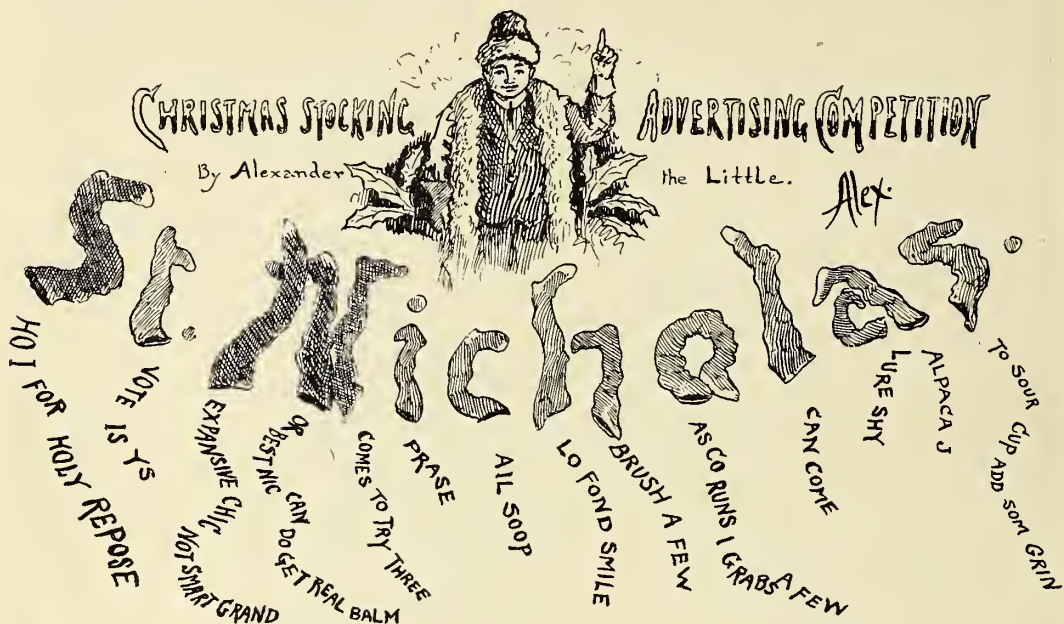 CHRISTMAS STOCKING ADVERTISING COMPETITION
By Alexander the Little.
Alex.
St. Nicholas.
HO I FOR HOLY REPOSE
VOTE IS YS
EXPANSIVE CHIC
NOT SMART GRAND
& BEST NIC CAN DO GET REAL BALM
COMES TO TRY THREE
PRASE
AIL SOOP
LO FOND SMILE
BRUSH A FEW
AS CO RUNS I GRABS A FEW
CAN COME
LURE SHY
ALPACA J
TO SOUR CUP ADD SOM GRIN